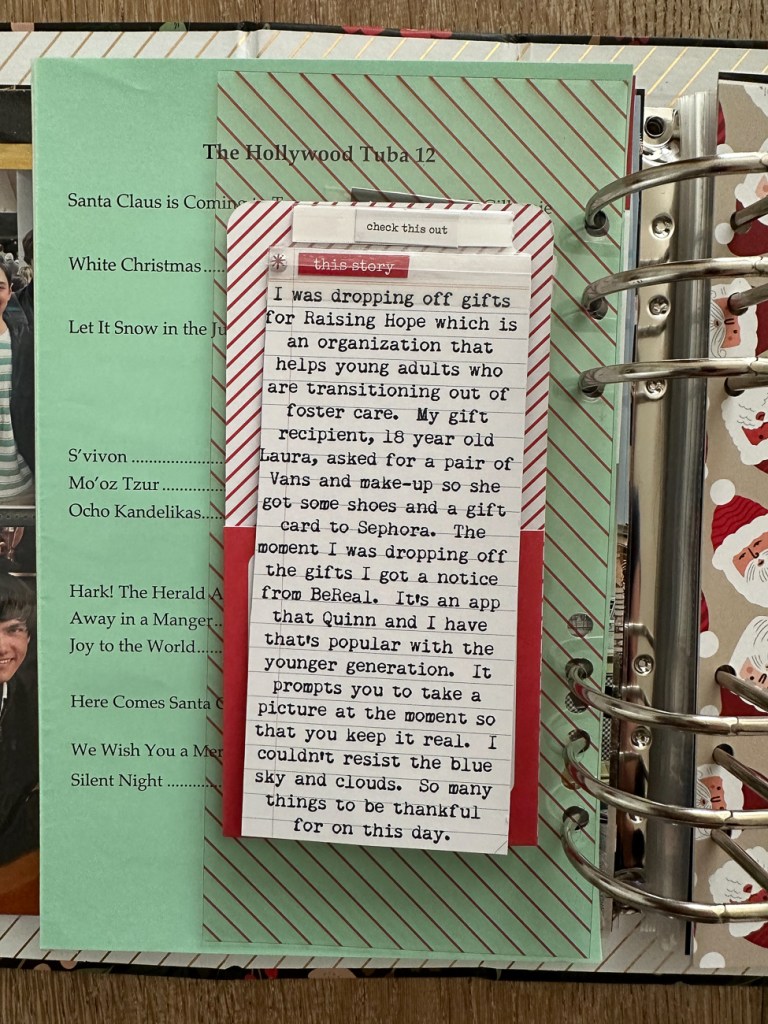 The Hollywood Tuba 12
Santa Claus is Coming
White Christmas
Let It Snow in the
S'vivon
Mo'oz Tzur
Ocho Kandelikas
Hark! The Herald
Away in a Manger
Joy to the World
Here Comes Santa
We Wish You a
Silent Night
check this out
this story
I was dropping off gifts
for Raising Hope which is
an organization that
helps young adults who
are transitioning out of
foster care. My gift
recipient, 18 year old
Laura, asked for a pair of
Vans and make-up so she
got some shoes and a gift
card to Sephora. The
moment I was dropping off
the gifts I got a notice
from BeReal. It's an app
that Quinn and I have
that's popular with the
younger generation. It
prompts you to take a
picture at the moment so
that you keep it real. I
couldn't resist the blue
sky and clouds. So many
things to be thankful
for on this day.